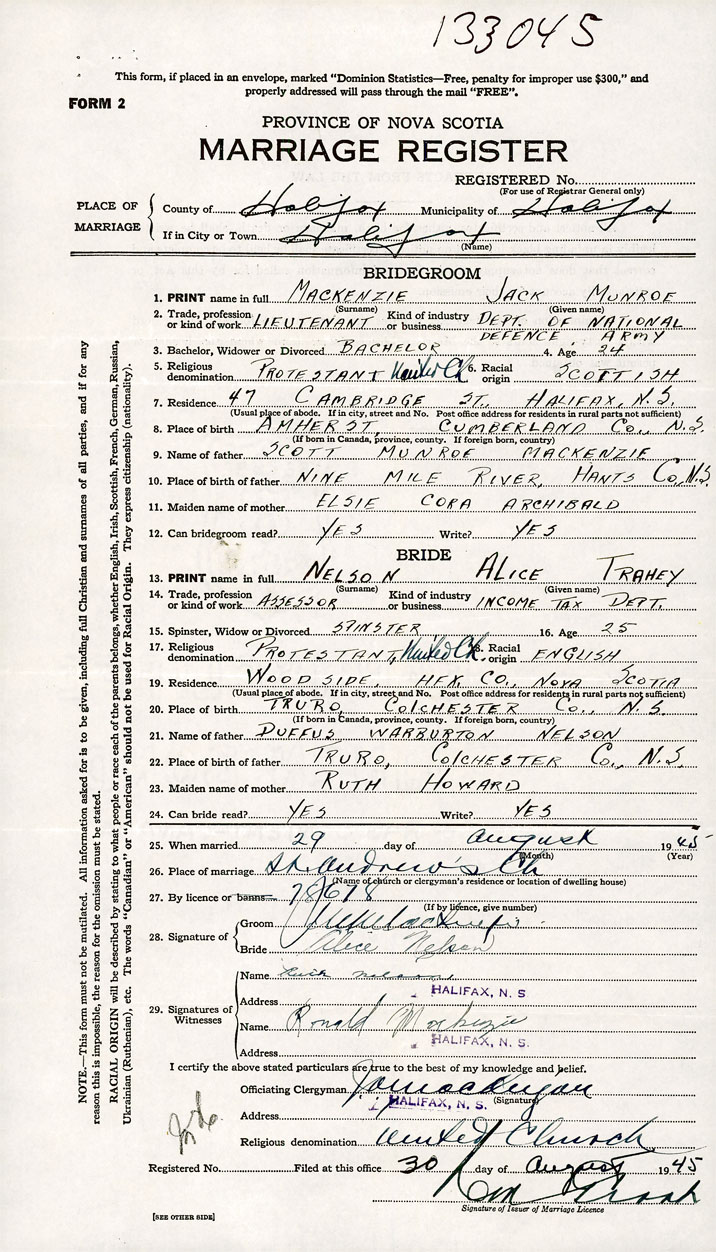 133045
This form, if placed in an envelope, marked "Dominion Statistics—Free, penalty for improper use $300," and
properly addressed will pass through the mail "FREE".
FORM 2
PROVINCE OF NOVA SCOTIA
MARRIAGE REGISTER
REGISTERED No.
(For use of Registrar General only)
PLACE OF MARRIAGE
County of Halifax Municipality of Halifax
If in City or Town Halifax
(Name)
BRIDEGROOM
1. PRINT name in full MACKENZIE JACK MUNROE
(Surname) (Given name)
2. Trade, profession or kind of work LIEUTENANT Kind of industry or business DEPT. OF NATIONAL
DEFENCE, ARMY
3. Bachelor, Widower or Divorced BACHELOR 4. Age 24
5. Religious denomination PROTESTANT United Ch 6. Racial origin SCOTTISH
7. Residence 47 CAMBRIDGE ST. HALIFAX, N.S.
(Usual place of abode. If in city, street and No. Post office address for residents in rural parts not sufficient)
8. Place of birth AMHERST, CUMBERLAND Co., N.S.
(If born in Canada, province, county. If foreign born, country)
9. Name of father SCOTT MUNROE MACKENZIE
10. Place of birth of father NINE MILE RIVER, HANTS Co., N.S.
11. Maiden name of mother ELSIE CORA ARCHIBALD
12. Can bridegroom read? YES Write? YES
BRIDE
13. PRINT name in full NELSON ALICE TRAHEY
(Surname) (Given name)
14. Trade, profession or kind of work ASSESSOR Kind of industry or business INCOME TAX DEPT.
15. Spinster, Widow or Divorced SPINSTER 16. Age 25
17. Religious denomination PROTESTANT, United Ch. 18. Racial origin ENGLISH
19. Residence WOODSIDE, HFX CO., NOVA SCOTIA
(Usual place of abode. If in city, street and No. Post office address for residents in rural parts not sufficient)
20. Place of birth TRURO COLCHESTER Co., N.S.
(If born in Canada, province, county. If foreign born, country)
21. Name of father DUFFUS WARBURTON NELSON
22. Place of birth of father TRURO, COLCHESTER Co., N.S.
23. Maiden name of mother RUTH HOWARD
24. Can bride read? YES Write? YES
25. When married 29 day of August 1945
(Month) (Year)
26. Place of marriage St. Andrew's Ch
(Name of church or clergyman's residence or location of dwelling house)
27. By licence or banns 78618
(If by licence, give number)
28. Signature of
Groom
Bride Alice Nelson
29. Signatures of Witnesses
Name
Address HALIFAX, N. S.
Name Ronald Mackenzie
Address HALIFAX, N. S.
I certify the above stated particulars are true to the best of my knowledge and belief.
Officiating Clergyman
(Signature)
Address HALIFAX, N. S.
Religious denomination United Church
Registered No. Filed at this office 30 day of August 1945
Signature of Issuer of Marriage Licence
[SEE OTHER SIDE]
NOTE.—This form must not be mutilated. All information asked for is to be given, including full Christian and surnames of all parties, and if for any
reason this is impossible, the reason for the omission must be stated.
RACIAL ORIGIN will be described by stating to what people or race each of the parents belongs, whether English, Irish, Scottish, French, German, Russian,
Ukrainian (Ruthenian), etc. The words "Canadian" or "American" should not be used for Racial Origin. They express citizenship (nationality).